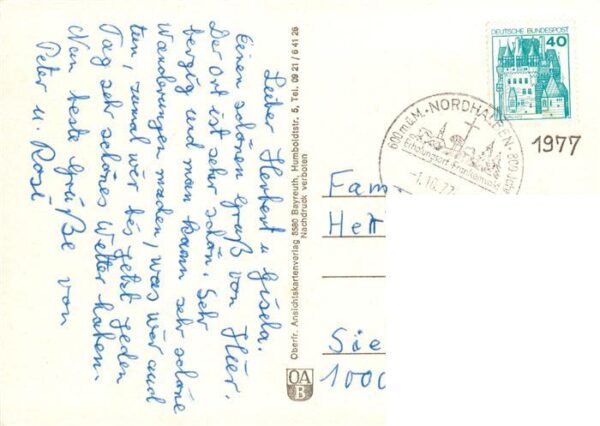 Lieber Herbert u Gisela.
Einen schönen Gruß von Hier.
Der Ort ist sehr schön. Sehr
bergig und man kann sehr schöne
Wanderungen machen, was wir auch
tun, zumal wir bis jetzt jeden
Tag sehr schönes Wetter haben.
Nun beste Grüße von
Peter u. Rosi
Oberfr. Ansichtskartenverlag 8580 Bayreuth, Humboldtstr. 5, Tel. 09 21 / 6 41 26
Nachdruck verboten
OA
B
DEUTSCHE BUNDESPOST
40
600 m ü.M. - NORDHALBEN - 800 Jahre
Erholungsort Frankenwald
-1.10.77
1977
Fam
Sie
1000